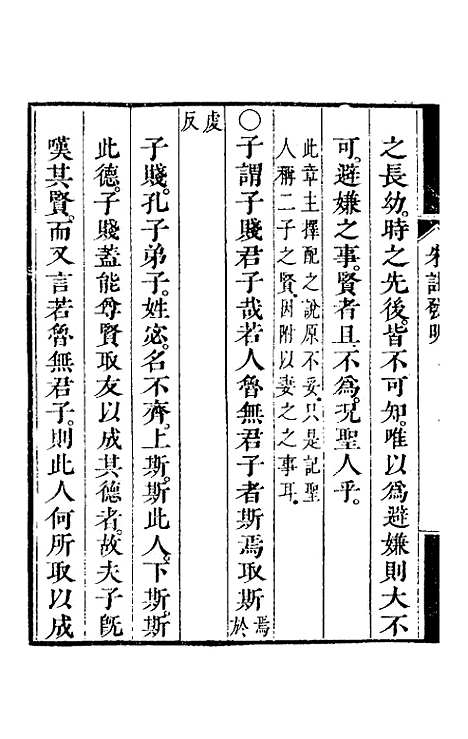 之長幼時之先後皆不可知唯以爲避嫌則大不
可避嫌之事賢者且不爲況聖人乎
此章主擇配之說原不妥只是記聖
人稱二子之賢因附以妻之之事耳
○子謂子賤君子哉若人魯無君子者斯焉取斯焉於
虔反
子賤孔子弟子姓宓名不齊上斯斯此人下斯斯
此德子賤蓋能尊賢取友以成其德者故夫子旣
嘆其賢而又言若魯無君子則此人何所取以成
朱註發明